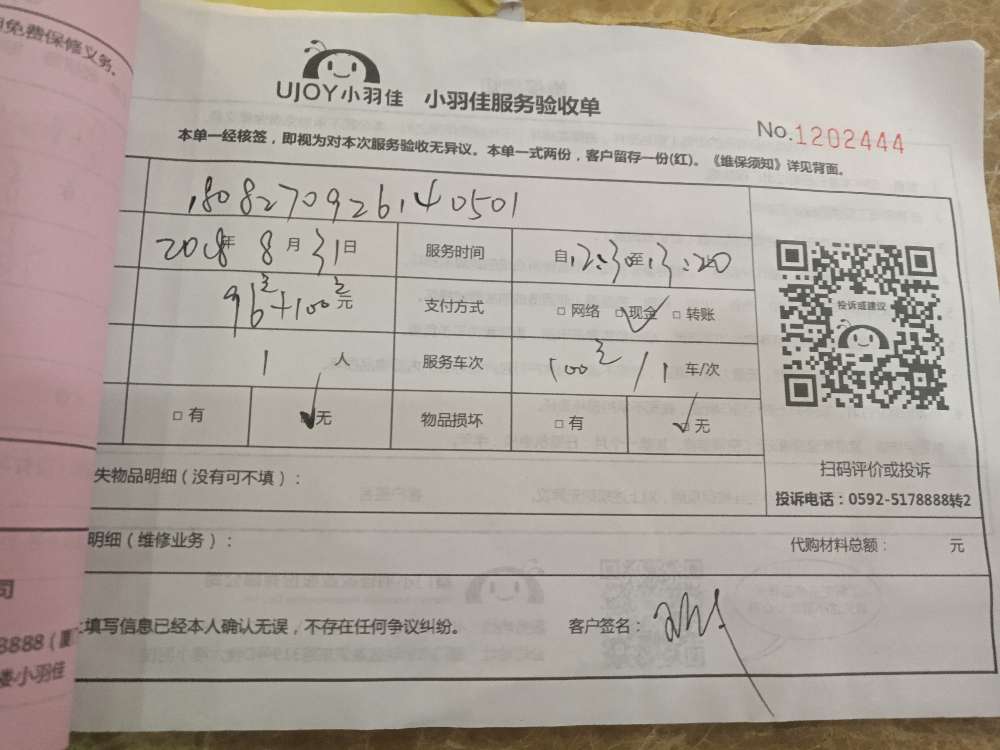 用免费保修义务。
UJOY小羽佳 小羽佳服务验收单
No.1202444
本单一经核签，即视为对本次服务验收无异议。本单一式两份，客户留存一份(红)。《维保须知》详见背面。
1808270926140501
2018年 8 月 31日 服务时间 自12:30至13:20
96元+100元 元 支付方式 □ 网络 □ 现金 □ 转账
投诉或建议
1 人 服务车次 100元/1 车/次
□ 有 □ 无 物品损坏 □ 有 □ 无
扫码评价或投诉
失物品明细（没有可不填）：
投诉电话：0592-5178888转2
明细（维修业务）： 代购材料总额： 元
司
填写信息已经本人确认无误，不存在任何争议纠纷。 客户签名：
8888（厦
楼小羽佳